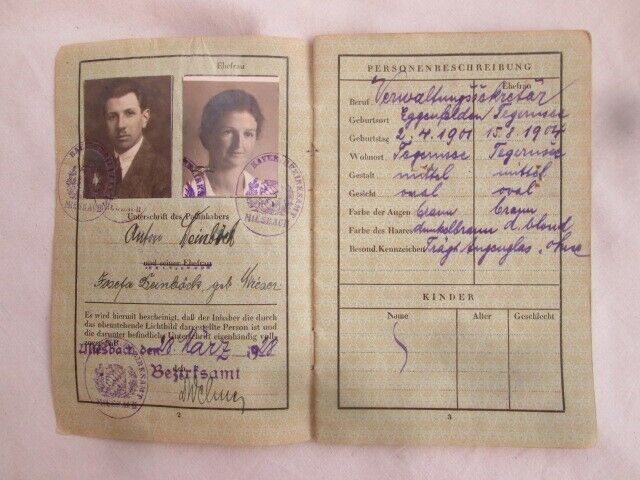 Ehefrau
BAYER. BEZIRKSAMT
MIESBACH
Unterschrift des Paßinhabers
Anton Weinböck
und seiner Ehefrau
Josefa Weinböck geb.
Es wird hiermit bescheinigt, daß der Inhaber die durch
das obenstehende Lichtbild dargestellte Person ist und
die darunter befindliche Unterschrift eigenhändig voll-
zogen hat.
Miesbach, den 20. März 19
Bezirksamt
2
PERSONENBESCHREIBUNG
Ehefrau
Beruf Verwaltungssekretär
Geburtsort Eggenfelden Tegernsee
Geburtstag 2.4.1901 15.8.1904
Wohnort Tegernsee Tegernsee
Gestalt mittel mittel
Gesicht oval oval
Farbe der Augen braun braun
Farbe des Haares dunkelbraun d. blond
Besond. Kennzeichen Trägt Augenglas. ohne
KINDER
Name Alter Geschlecht
3